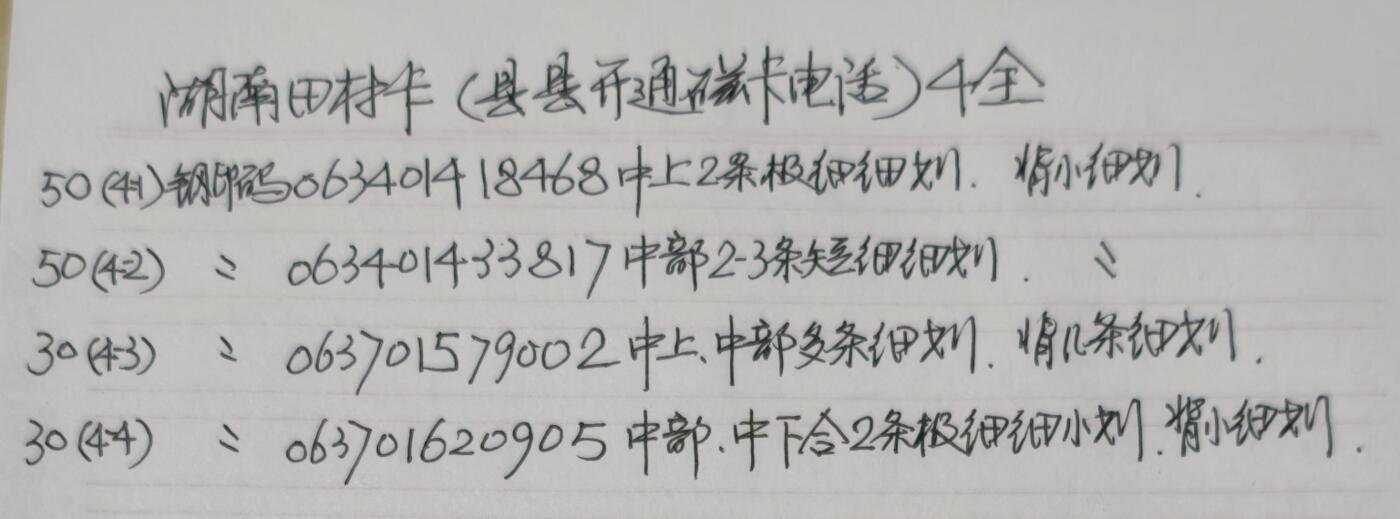 湖南田村卡(县县开通磁卡电话)4全
50(4-1)钢印码063401418468中上2条极细细划. 背小细划.
50(4-2) 〃 063401433817中部2-3条短细细划. 〃
30(4-3) 〃 063701579002中上、中部多条细划. 背几条细划.
30(4-4) 〃 063701620905中部、中下合2条极细细小划.背小细划.